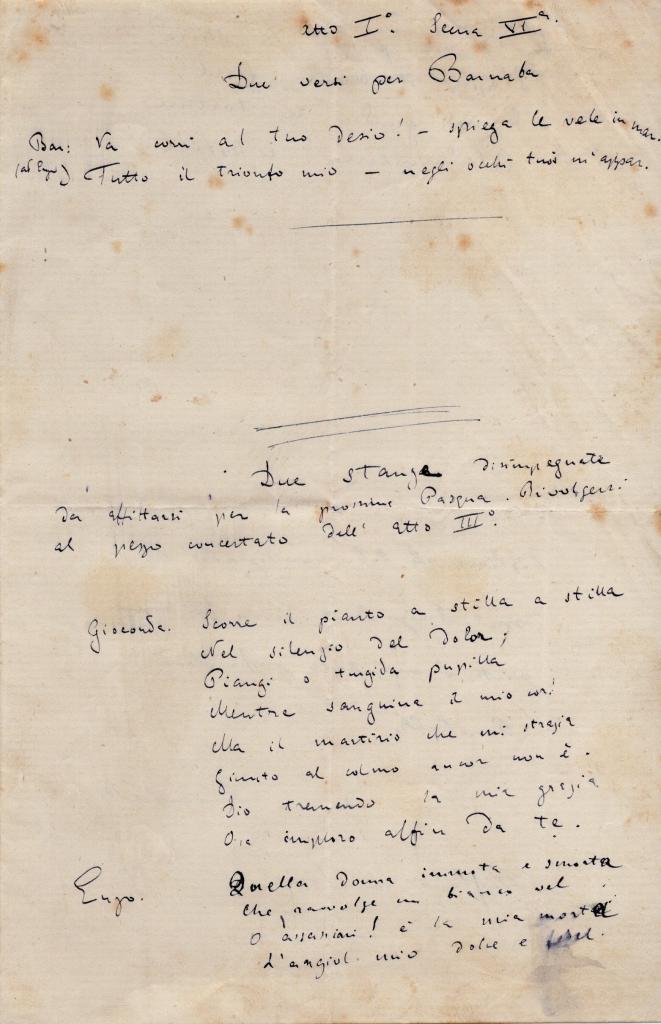 Atto I°. Scena VIa.
Due versi per Barnaba
Bar: Va corri al tuo desio! – spiega le vele in mar.
(ad Enzo) Tutto il trionfo mio – negli occhi tuoi m'appar.
Due stanze disimpegnate
da affittarsi per la prossima Pasqua. Rivolgersi
al pezzo concertato dell' atto III°.
Gioconda. Scorre il pianto a stilla a stilla
Nel silenzio del dolor;
Piangi o turgida pupilla
Mentre sanguina il mio cor!
Ma il martirio che mi strazia
Giunto al colmo ancor non è.
Dio tremendo la mia grazia
Ora imploro alfin da te.
Enzo. Quella donna immota e smorta
Che ravvolge un bianco vel
O assassini! è la mia morta
L'angiol mio dolce e